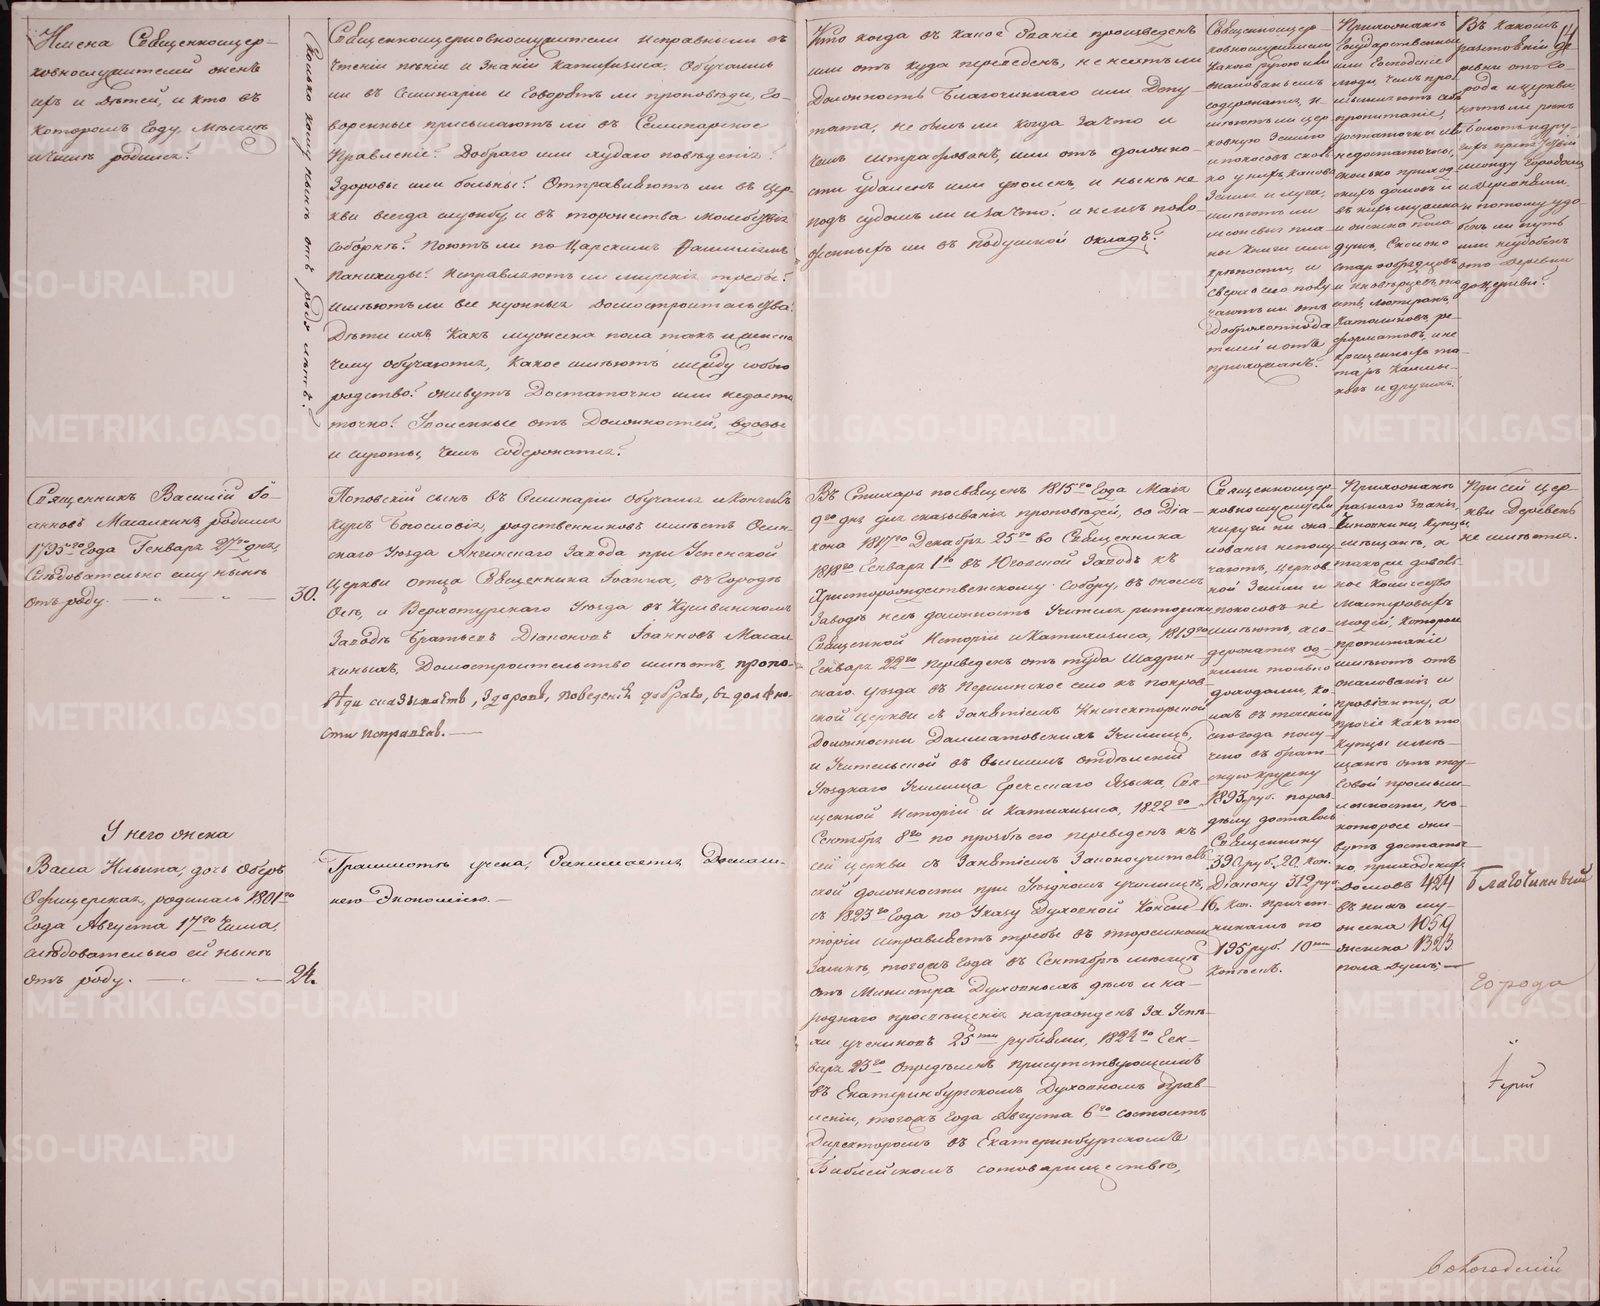 Имена Священноцер-
ковнослужителей женъ
ихъ и дѣтей, и кто въ
которомъ году, мѣсяцѣ
и числѣ родился?
Сколько кому нынѣ отъ роду лѣтъ?
Священноцерковнослужители исправны ли въ
чтеніи пѣніи и знаніи катихизиса. Обучались
ли въ Семинаріи и говорятъ ли проповѣди, го-
воренные присылаютъ ли въ Семинарское
Правленіе? Добраго или худаго поведенія?
Здоровы или больны? Отправляютъ ли въ цер-
кви всегда службу, и въ торжества молебствія
соборнѣ? Поютъ ли по Царскимъ Фамиліямъ
Панихиды? Исправляютъ ли мирскія требы?
Имѣютъ ли все нужныя домостроительства?
Дѣти ихъ какъ мужеска пола такъ и женска
чему обучаются, какое имѣютъ между собою
родство? живутъ достаточно или недоста-
точно? Уволенные отъ должностей, вдовы
и сироты, чемъ содержатся?
Кто когда въ какое званіе произведенъ
или отъ куда переведенъ, не несетъ ли
должность Благочиннаго или Депу-
тата, не былъ ли когда за что и
чемъ штрафованъ, или отъ должно-
сти удаленъ или уволенъ, и нынѣ не
подъ судомъ ли и за что? и не изъ поло-
женныхъ ли въ подушной окладъ?
Священноцер-
ковнослужители
какою ругою или
жалованьемъ
содержатся, и
имѣютъ ли цер-
ковную землю
и покосовъ сколь-
ко у нихъ, какова
земля и луга,
имѣютъ ли
межевыя пла-
ны книги или
крѣпости, и
сверхъ сего полу-
чаютъ ли отъ
доброхотнода-
телей и отъ
прихожанъ?
Прихожанъ
Государственные
или Господскіе
люди, чемъ про-
мышляютъ въ
пропитаніе,
достаточны или
недостаточны,
сколько приход-
скихъ домовъ и
въ нихъ мужеска
и женска пола
душъ, сколько
старообрядцовъ
и иновѣрцовъ то
есть, лютеранъ,
Католиковъ, ре-
форматовъ, и не
крещенныхъ та-
таръ Калмы-
ковъ и другихъ?
Въ какомъ
разстояніи де-
ревни отъ го-
рода и церкви
нѣтъ ли рекъ
болотъ и дру-
гихъ препятствій
между городомъ
и деревнями
и потому удо-
бенъ ли путь
или неудобенъ
отъ деревни
до церкви?
14
Священникъ Василій Іо-
анновъ Масалкинъ родился
1795го года Генваря 27го дня,
слѣдовательно ему нынѣ
отъ роду. — 30.
Поповскій сынъ въ Семинаріи обучался и кончилъ
курсъ Богословія, родственниковъ имѣетъ Осин-
скаго Уѣзда Аннинскаго Завода при Успенской
церкви отца Священника Іоанна, въ городѣ
Осѣ, и Верхотурскаго Уѣзда въ Кушвинскомъ
Заводѣ Братьевъ Діаконовъ Іоанновъ Масал-
киныхъ, Домостроительство имѣетъ, пропо-
вѣди сказываетъ, здоровъ, поведенія добраго, въ должно-
сти исправенъ. —
Въ Стихарь посвященъ 1815го года Маія
9го дня для сказыванія проповѣдей, во Діа-
кона 1817го Декабря 25го во Священника
1818го Генваря 1го въ Юговской Заводъ къ
Христорождественскому Собору, въ ономъ
Заводѣ несъ должность Учителя риторики
Священной Исторіи и Катихизиса, 1819го
Генваря 22го переведенъ отъ туда Шадрин-
скаго Уѣзда въ Першинское село къ покров-
ской церкви съ занятіемъ Инспекторской
должности Далматовскихъ Училищъ,
и Учительской въ высшемъ отдѣленіи
Уѣзднаго Училища Греческаго Языка, Свя-
щенной Исторіи и Катихизиса, 1822го
Сентября 8го по прозьбѣ его переведенъ къ
сей церкви съ занятіемъ Законоучитель-
ской должности при Уѣздномъ училищѣ,
съ 1823го года по Указу Духовной Консис-
торіи исправляетъ требы въ тюремномъ
Замкѣ, тогожъ года въ Сентябрѣ мѣсяцѣ
отъ Министра Духовныхъ дѣлъ и на-
роднаго просвѣщенія награжденъ за Успѣ-
хи учениковъ 25ти рублями, 1824го Ген-
варя 23го опредѣленъ присутствующимъ
въ Екатеринбургскомъ Духовномъ прав-
леніи, тогожъ года Августа 6го состоитъ
Директоромъ въ Екатеринбургскомъ
Библейскомъ сотовариществѣ,
Священноцер-
ковнослужители
ни руги ни жа-
лованья не полу-
чаютъ, церков-
ной земли и
покосовъ не
имѣютъ, а со-
держатся од-
ними только
доходами, ко-
ихъ въ теченіи
сего года полу-
чено въ брат-
скую кружку
1893 руб. по раз-
дѣлу досталось
Священнику
390 руб. 20. коп.
Діакону 312 руб.
16. коп. причет-
никамъ по
195 руб. 10ти
копѣекъ.
Прихожанѣ
разнаго званія,
Чиновники, купцы,
мѣщане, а
также доволь-
ное количество
мастеровыхъ
людей, которые
пропитаніе
имѣютъ отъ
жалованія и
провіанту, а
прочіе какъ то
купцы мѣ-
щане отъ тор-
говой промыш-
ленности, на
которое жи-
вутъ достаточ-
но, приходскихъ
домовъ 424
въ нихъ му-
жеска 1059
женска 1323
пола душъ; —
При сей цер-
кви деревень
не имѣется.
У него жена
Васса Ильина, дочь Оберъ
Офицерская, родилась 1801го
года Августа 17го числа,
слѣдовательно ей нынѣ
отъ роду. — 24.
Грамотѣ учена, занимается Домаш-
нею Экономіею. —
Благочинный
города
Іерей
METRIKI.GASO-URAL.RU